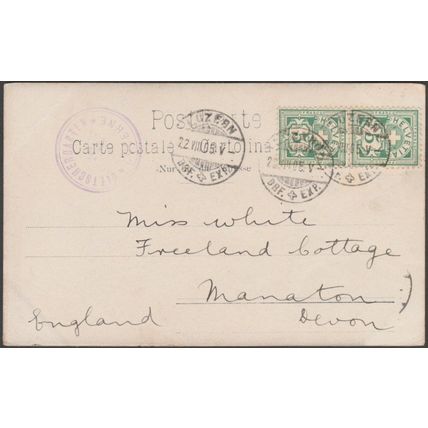 Postkarte
Carte postale Cartolina
Nur
LUZERN
22.VIII.05.V
BRF. EXP.
HELVETIA
5
HELVETIA
5
Miss White
Freeland Cottage
Manaton
Devon
England